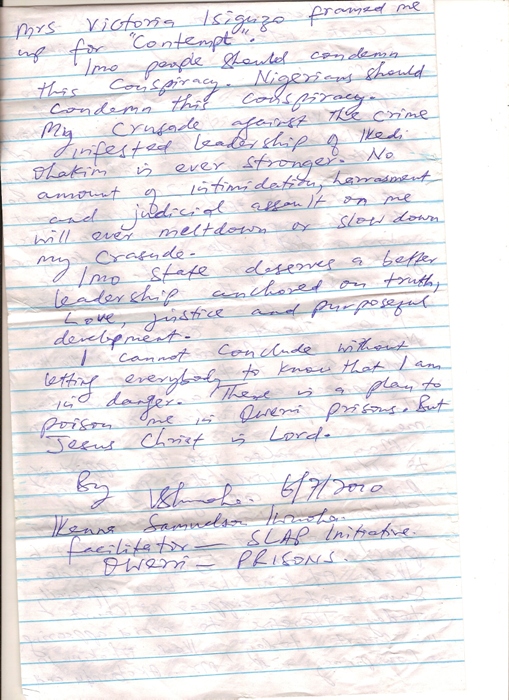 Mrs Victoria Isiguzo framed me
up for "Contempt".
Imo people should condemn
this conspiracy. Nigerians should
condemn this conspiracy.
My Crusade against the crime
infested leadership of Ikedi
Ohakim is ever stronger. No
amount of intimidation, harrasment,
and judicial assault on me
will ever meltdown or slow down
my Crusade.
Imo State deserves a better
leadership anchored on truth,
Love, justice and purposeful
development.
I cannot conclude without
letting everybody to know that I am
in danger. There is a plan to
poison me in Owerri prisons. But
Jesus Christ is Lord.
By 6/7/2010
Ikenna Samuelson
facilitator — SLAP Initiative.
Owerri — PRISONS.